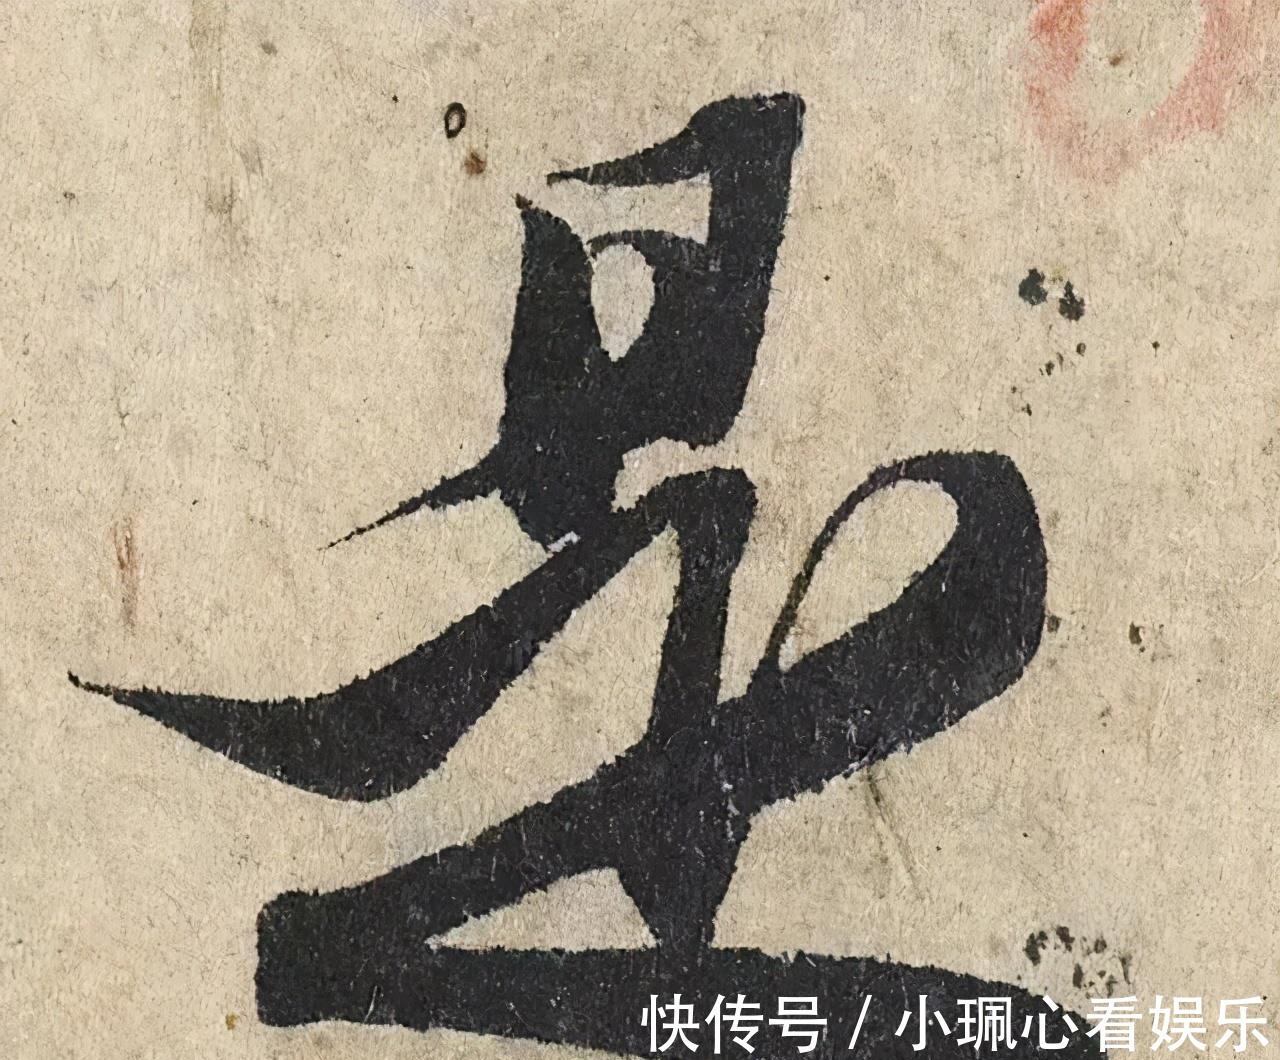 星
快传号 / 小珮心看娱乐